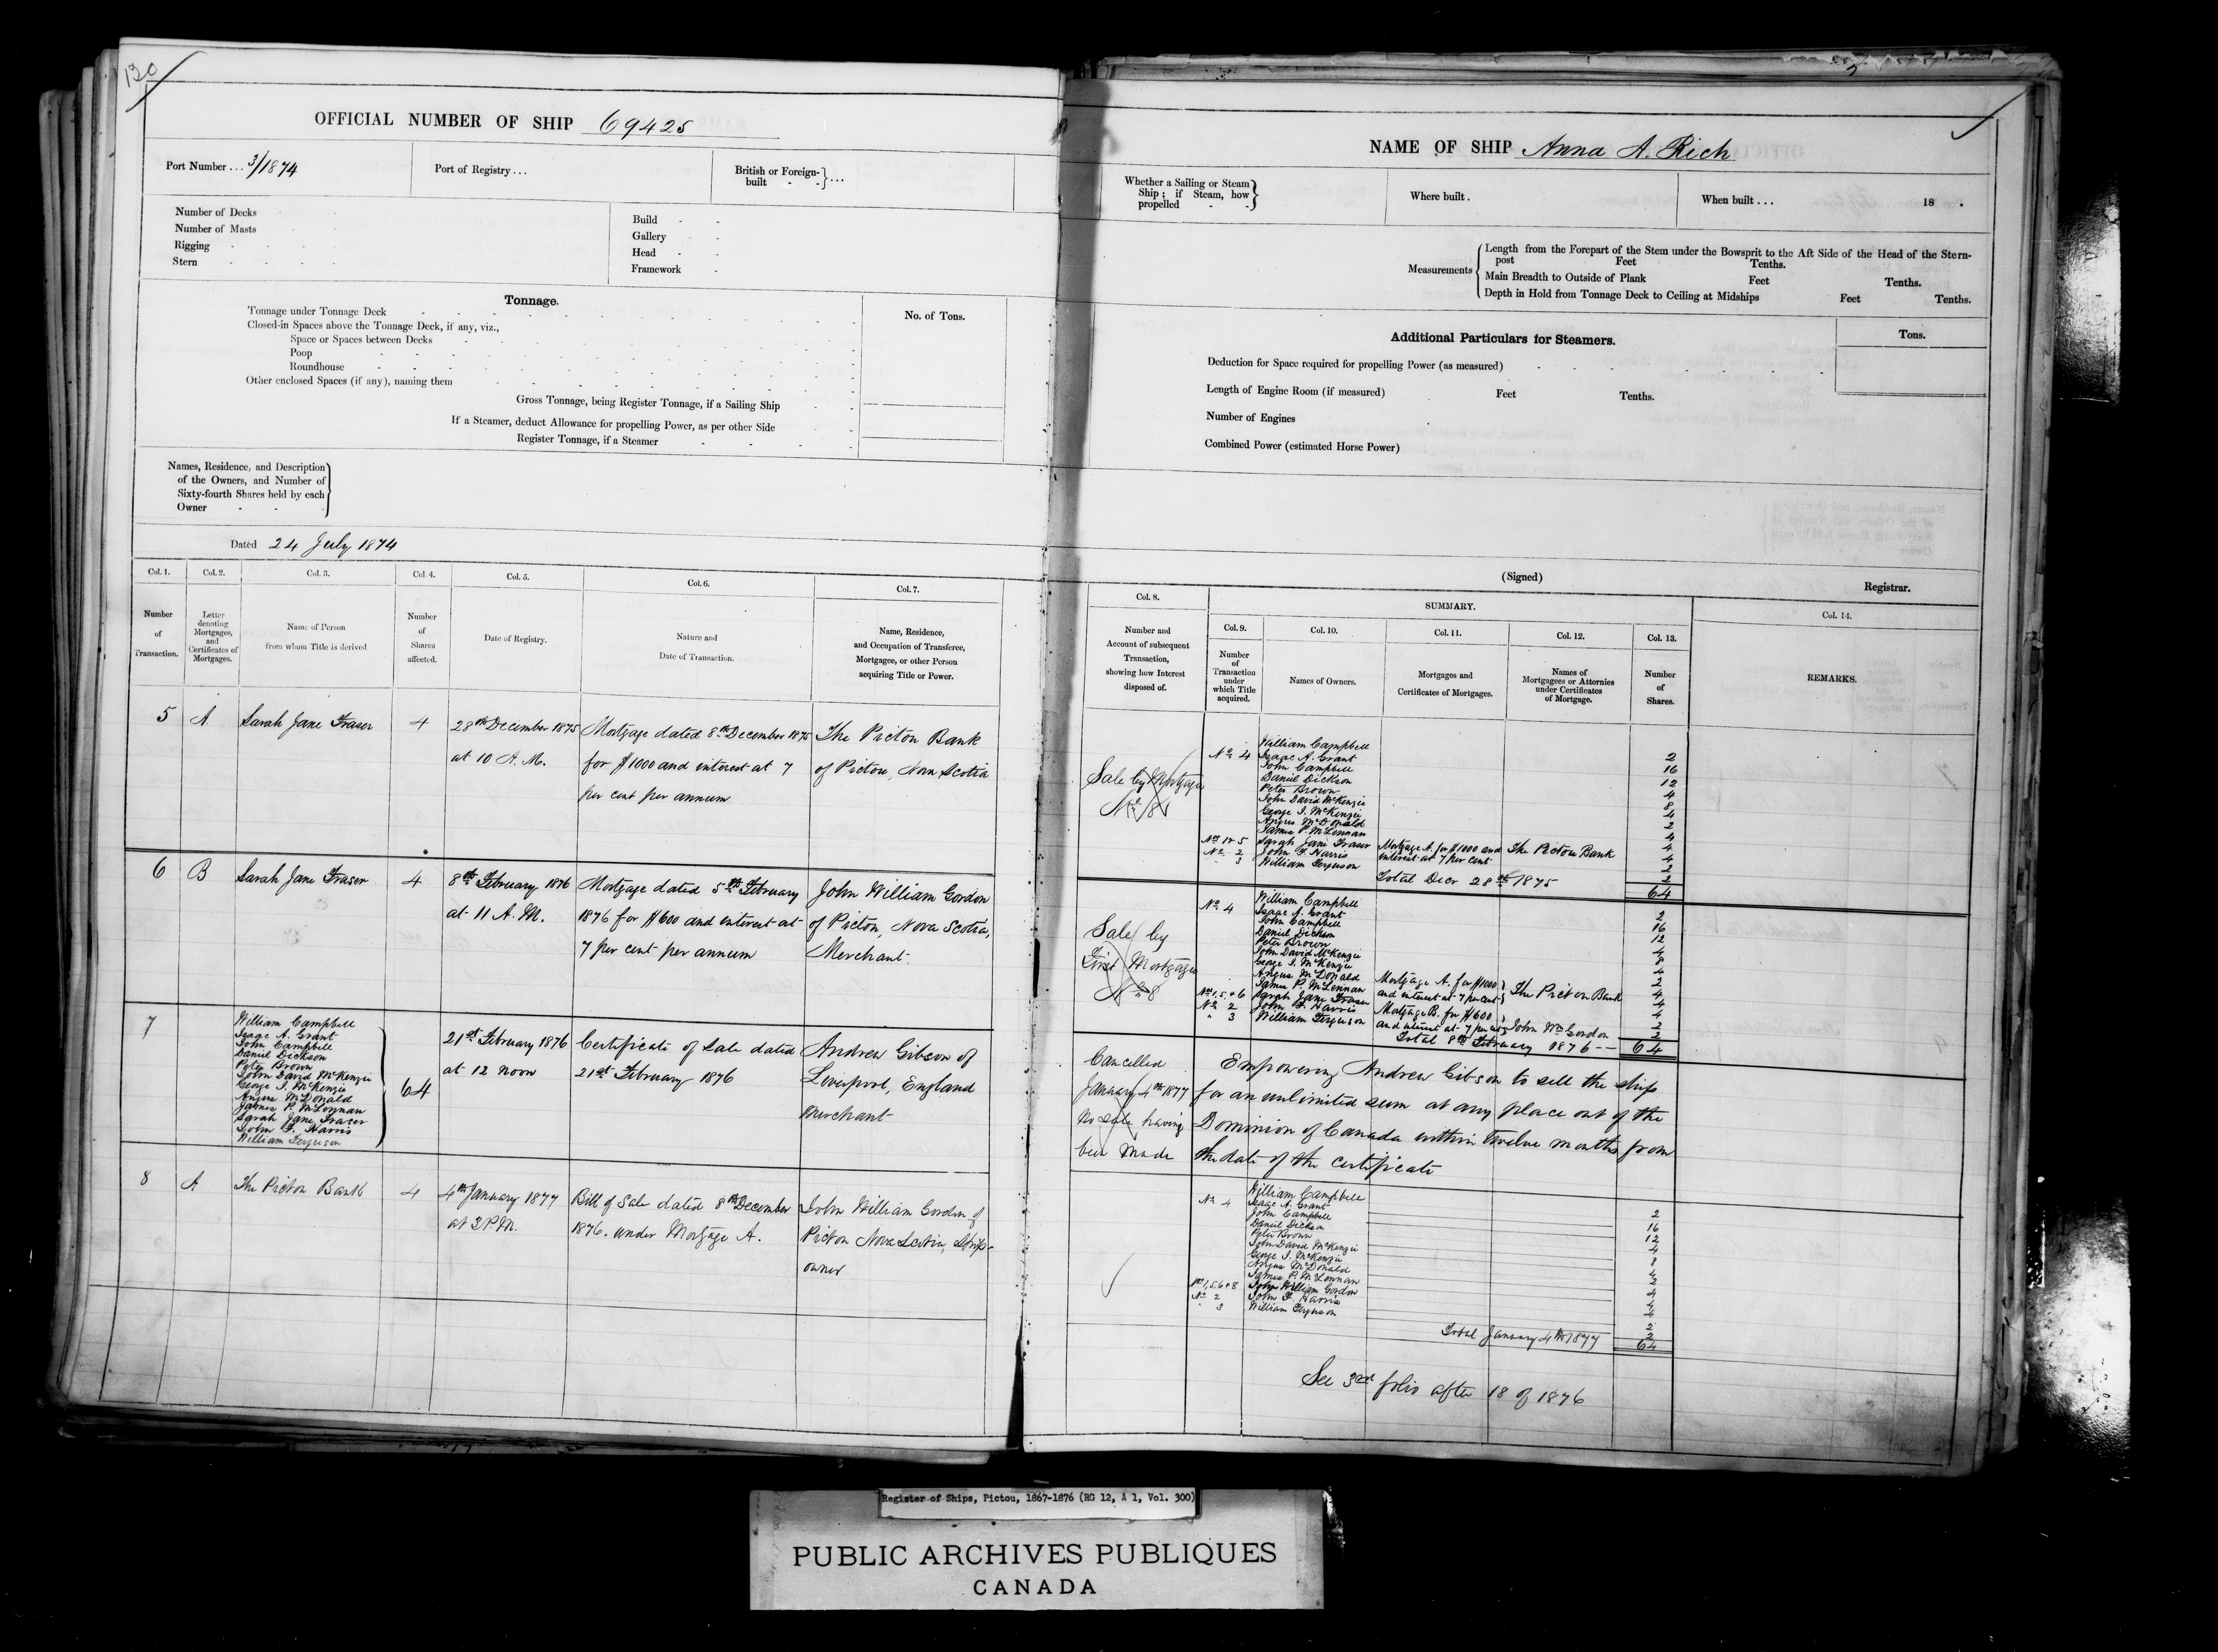 130
OFFICIAL NUMBER OF SHIP 69425
Port Number ... 3/1874
Port of Registry ...
British or Foreign-built } ...
Number of Decks
Number of Masts
Rigging
Stern
Build
Gallery
Head
Framework
Tonnage.
No. of Tons.
Tonnage under Tonnage Deck
Closed-in Spaces above the Tonnage Deck, if any, viz.,
Space or Spaces between Decks
Poop
Roundhouse
Other enclosed Spaces (if any), naming them
Gross Tonnage, being Register Tonnage, if a Sailing Ship
If a Steamer, deduct Allowance for propelling Power, as per other Side
Register Tonnage, if a Steamer
Names, Residence, and Description
of the Owners, and Number of
Sixty-fourth Shares held by each
Owner
Dated 24 July 1874
Col. 1. Col. 2. Col. 3. Col. 4. Col. 5. Col. 6. Col. 7.
Number
of
Transaction.
Letter
denoting
Mortgages,
and
Certificates of
Mortgages.
Name of Person
from whom Title is derived
Number
of
Shares
affected.
Date of Registry.
Nature and
Date of Transaction.
Name, Residence,
and Occupation of Transferee,
Mortgagee, or other Person
acquiring Title or Power.
5 A Sarah Jane Fraser 4
28th December 1875
at 10 A.M.
Mortgage dated 8th December 1875
for $1000 and interest at 7
per cent per annum
The Pictou Bank
of Pictou, Nova Scotia
6 B Sarah Jane Fraser 4
8th February 1876
at 11 A.M.
Mortgage dated 5th February
1876 for $600 and interest at
7 per cent per annum
John William Gordon
of Pictou, Nova Scotia,
Merchant.
7
William Campbell
Isaac A. Grant
John Campbell
Daniel Dickson
Peter Brown
John David McKenzie
George I. McKenzie
Angus McDonald
James P. McLennan
Sarah Jane Fraser
John F. Harris
William Ferguson
64
21st February 1876
at 12 noon
Certificate of Sale dated
21st February 1876
Andrew Gibson of
Liverpool, England
Merchant
8 A The Pictou Bank 4
4th January 1877
at 2 P.M.
Bill of Sale dated 8th December
1876. under Mortgage A.
John William Gordon of
Pictou Nova Scotia, Ship-
owner
NAME OF SHIP Anna A. Rich
Whether a Sailing or Steam
Ship; if Steam, how
propelled
Where built.
When built ... 18 .
Measurements
Length from the Forepart of the Stem under the Bowsprit to the Aft Side of the Head of the Stern-
post Feet Tenths.
Main Breadth to Outside of Plank Feet Tenths.
Depth in Hold from Tonnage Deck to Ceiling at Midships Feet Tenths.
Additional Particulars for Steamers.
Tons.
Deduction for Space required for propelling Power (as measured)
Length of Engine Room (if measured) Feet Tenths.
Number of Engines
Combined Power (estimated Horse Power)
(Signed) Registrar.
Col. 8.
Number and
Account of subsequent
Transaction,
showing how Interest
disposed of.
SUMMARY.
Col. 9. Col. 10. Col. 11. Col. 12. Col. 13. Col. 14.
Number
of
Transaction
under
which Title
acquired.
Names of Owners.
Mortgages and
Certificates of Mortgages.
Names of
Mortgagees or Attornies
under Certificates
of Mortgage.
Number
of
Shares.
REMARKS.
Sale by Mortgagee
No 8
No 4
William Campbell 2
Isaac A. Grant 16
John Campbell 12
Daniel Dickson 4
Peter Brown 8
John David McKenzie 4
George I. McKenzie 2
Angus McDonald 4
James P. McLennan 4
Nos 1 & 5 Sarah Jane Fraser 4
No 2 John F. Harris 2
" 3 William Ferguson 2
Mortgage A. for $1000 and
interest at 7 per cent
The Pictou Bank
Total Decr 28th 1875 64
Sale by
First Mortgagee
No 8
No 4
William Campbell 2
Isaac A. Grant 16
John Campbell 12
Daniel Dickson 4
Peter Brown 8
John David McKenzie 4
George I. McKenzie 2
Angus McDonald 4
James P. McLennan 4
Nos 1, 5. & 6 Sarah Jane Fraser 4
No 2 John F. Harris 2
" 3 William Ferguson 2
Mortgage A. for $1000
and interest at 7 per cent
The Pictou Bank
Mortgage B. for $600
and interest at 7 per cent
John Wm Gordon
Total 8th February 1876 -- 64
Cancelled
January 4th 1877
No sale having
been made
Empowering Andrew Gibson to sell the ship
for an unlimited sum at any place out of the
Dominion of Canada within twelve months from
the date of the certificate
No 4
William Campbell 2
Isaac A. Grant 16
John Campbell 12
Daniel Dickson 4
Peter Brown 8
John David McKenzie 4
George I. McKenzie 2
Angus McDonald 4
James P. McLennan 4
Nos 1, 5. 6 & 8 John William Gordon 4
No 2 John F. Harris 2
" 3 William Ferguson 2
Total January 4th 1877 64
See 3rd folio after 18 of 1876
Register of Ships, Pictou, 1867-1876 (RG 12, A 1, Vol. 300)
PUBLIC ARCHIVES PUBLIQUES
CANADA